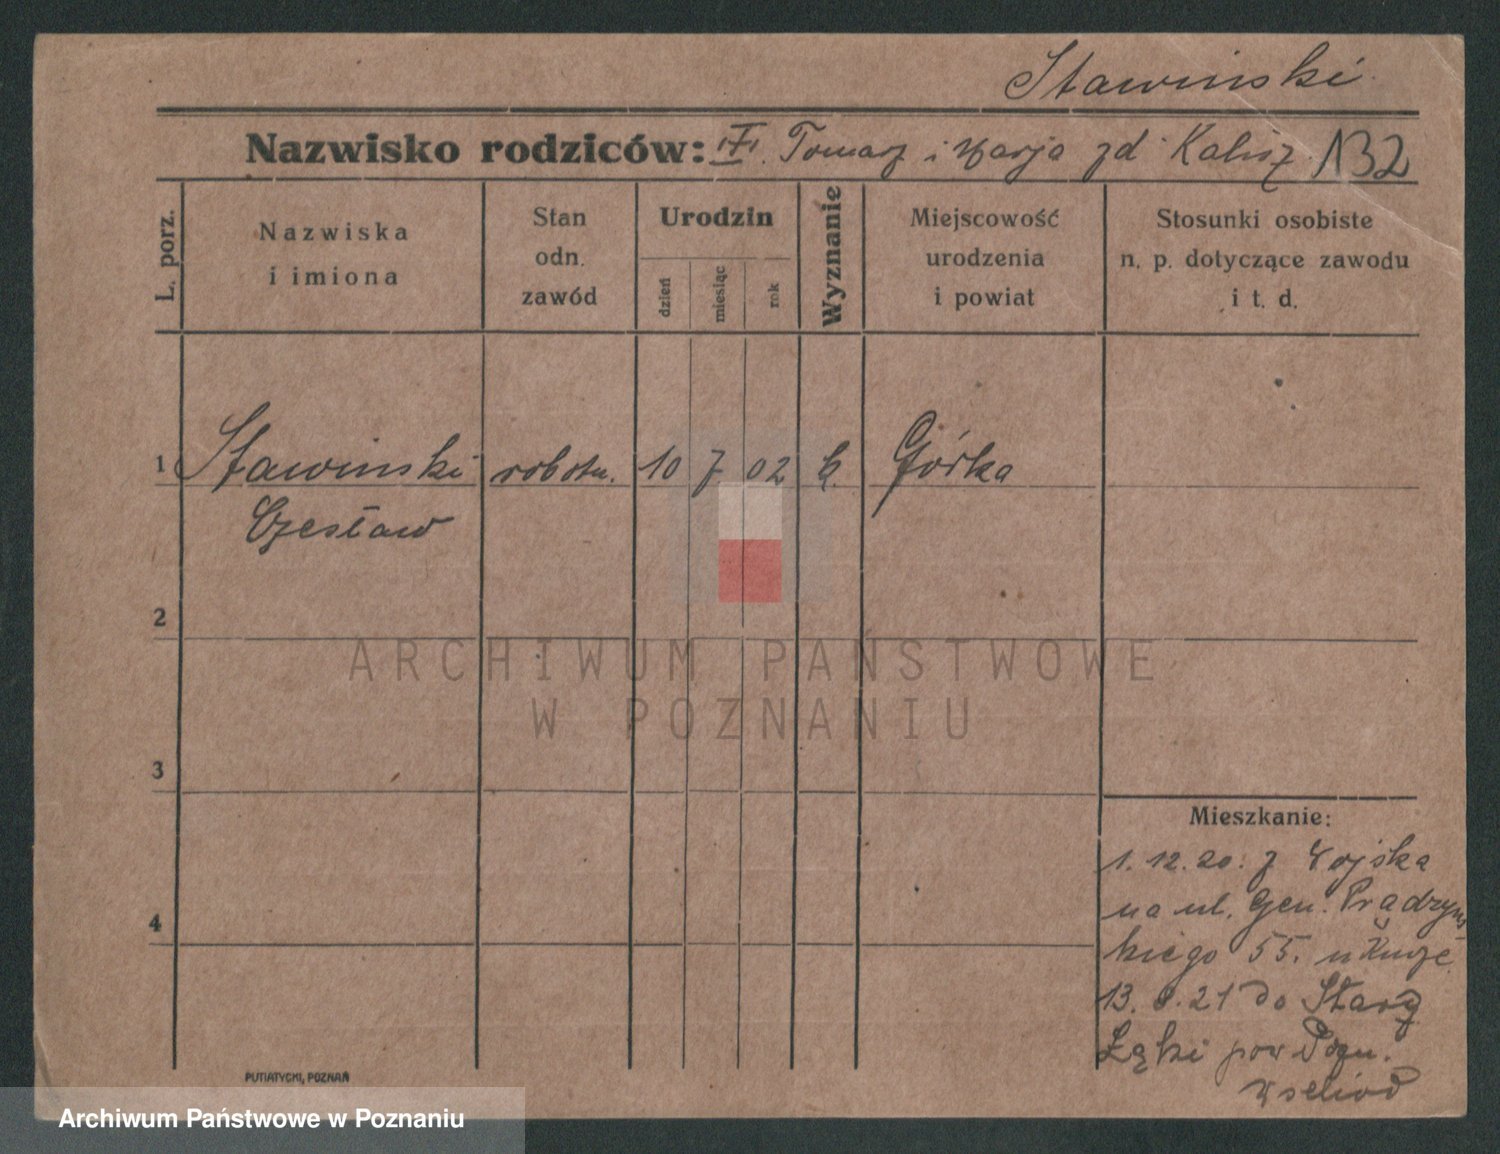 Stawinski
Nazwisko rodziców: Tomasz i Marja zd Kalisz 132
L. porz.
Nazwiska
i imiona
Stan
odn.
zawód
Urodzin
dzień
miesiąc
rok
Wyznanie
Miejscowość
urodzenia
i powiat
Stosunki osobiste
n. p. dotyczące zawodu
i t. d.
1 Stawinski robotn. 10 7 02 k. Górka
Czesław
2
3
4
Mieszkanie:
1.12.20. z Wojska
na ul. Gen. Prądzyńs
kiego 55. u
13. 21 do
Łęki pow Pozn.
wschod
PUTIATYCKI, POZNAŃ
ARCHIWUM PAŃSTWOWE
W POZNANIU
Archiwum Państwowe w Poznaniu